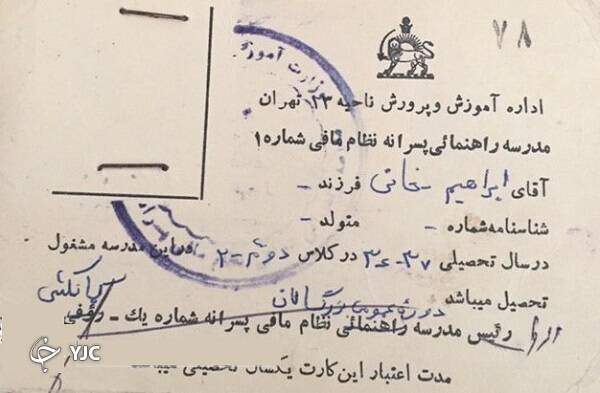 ۷۸
اداره آموزش و پرورش ناحیه ۱۳ تهران
مدرسه راهنمائی پسرانه نظام مافی شماره ۱
آقای ابراهیم فرزند -
شناسنامه شماره - متولد -
در سال تحصیلی ۳۷-۳۶ در کلاس دوم-۲ در این مدرسه مشغول
تحصیل میباشد دوره عمومی بزرگسالان
رئیس مدرسه راهنمائی نظام مافی پسرانه شماره یک -
مدت اعتبار این کارت یکسال تحصیلی میباشد
وزارت آموزش
YJC